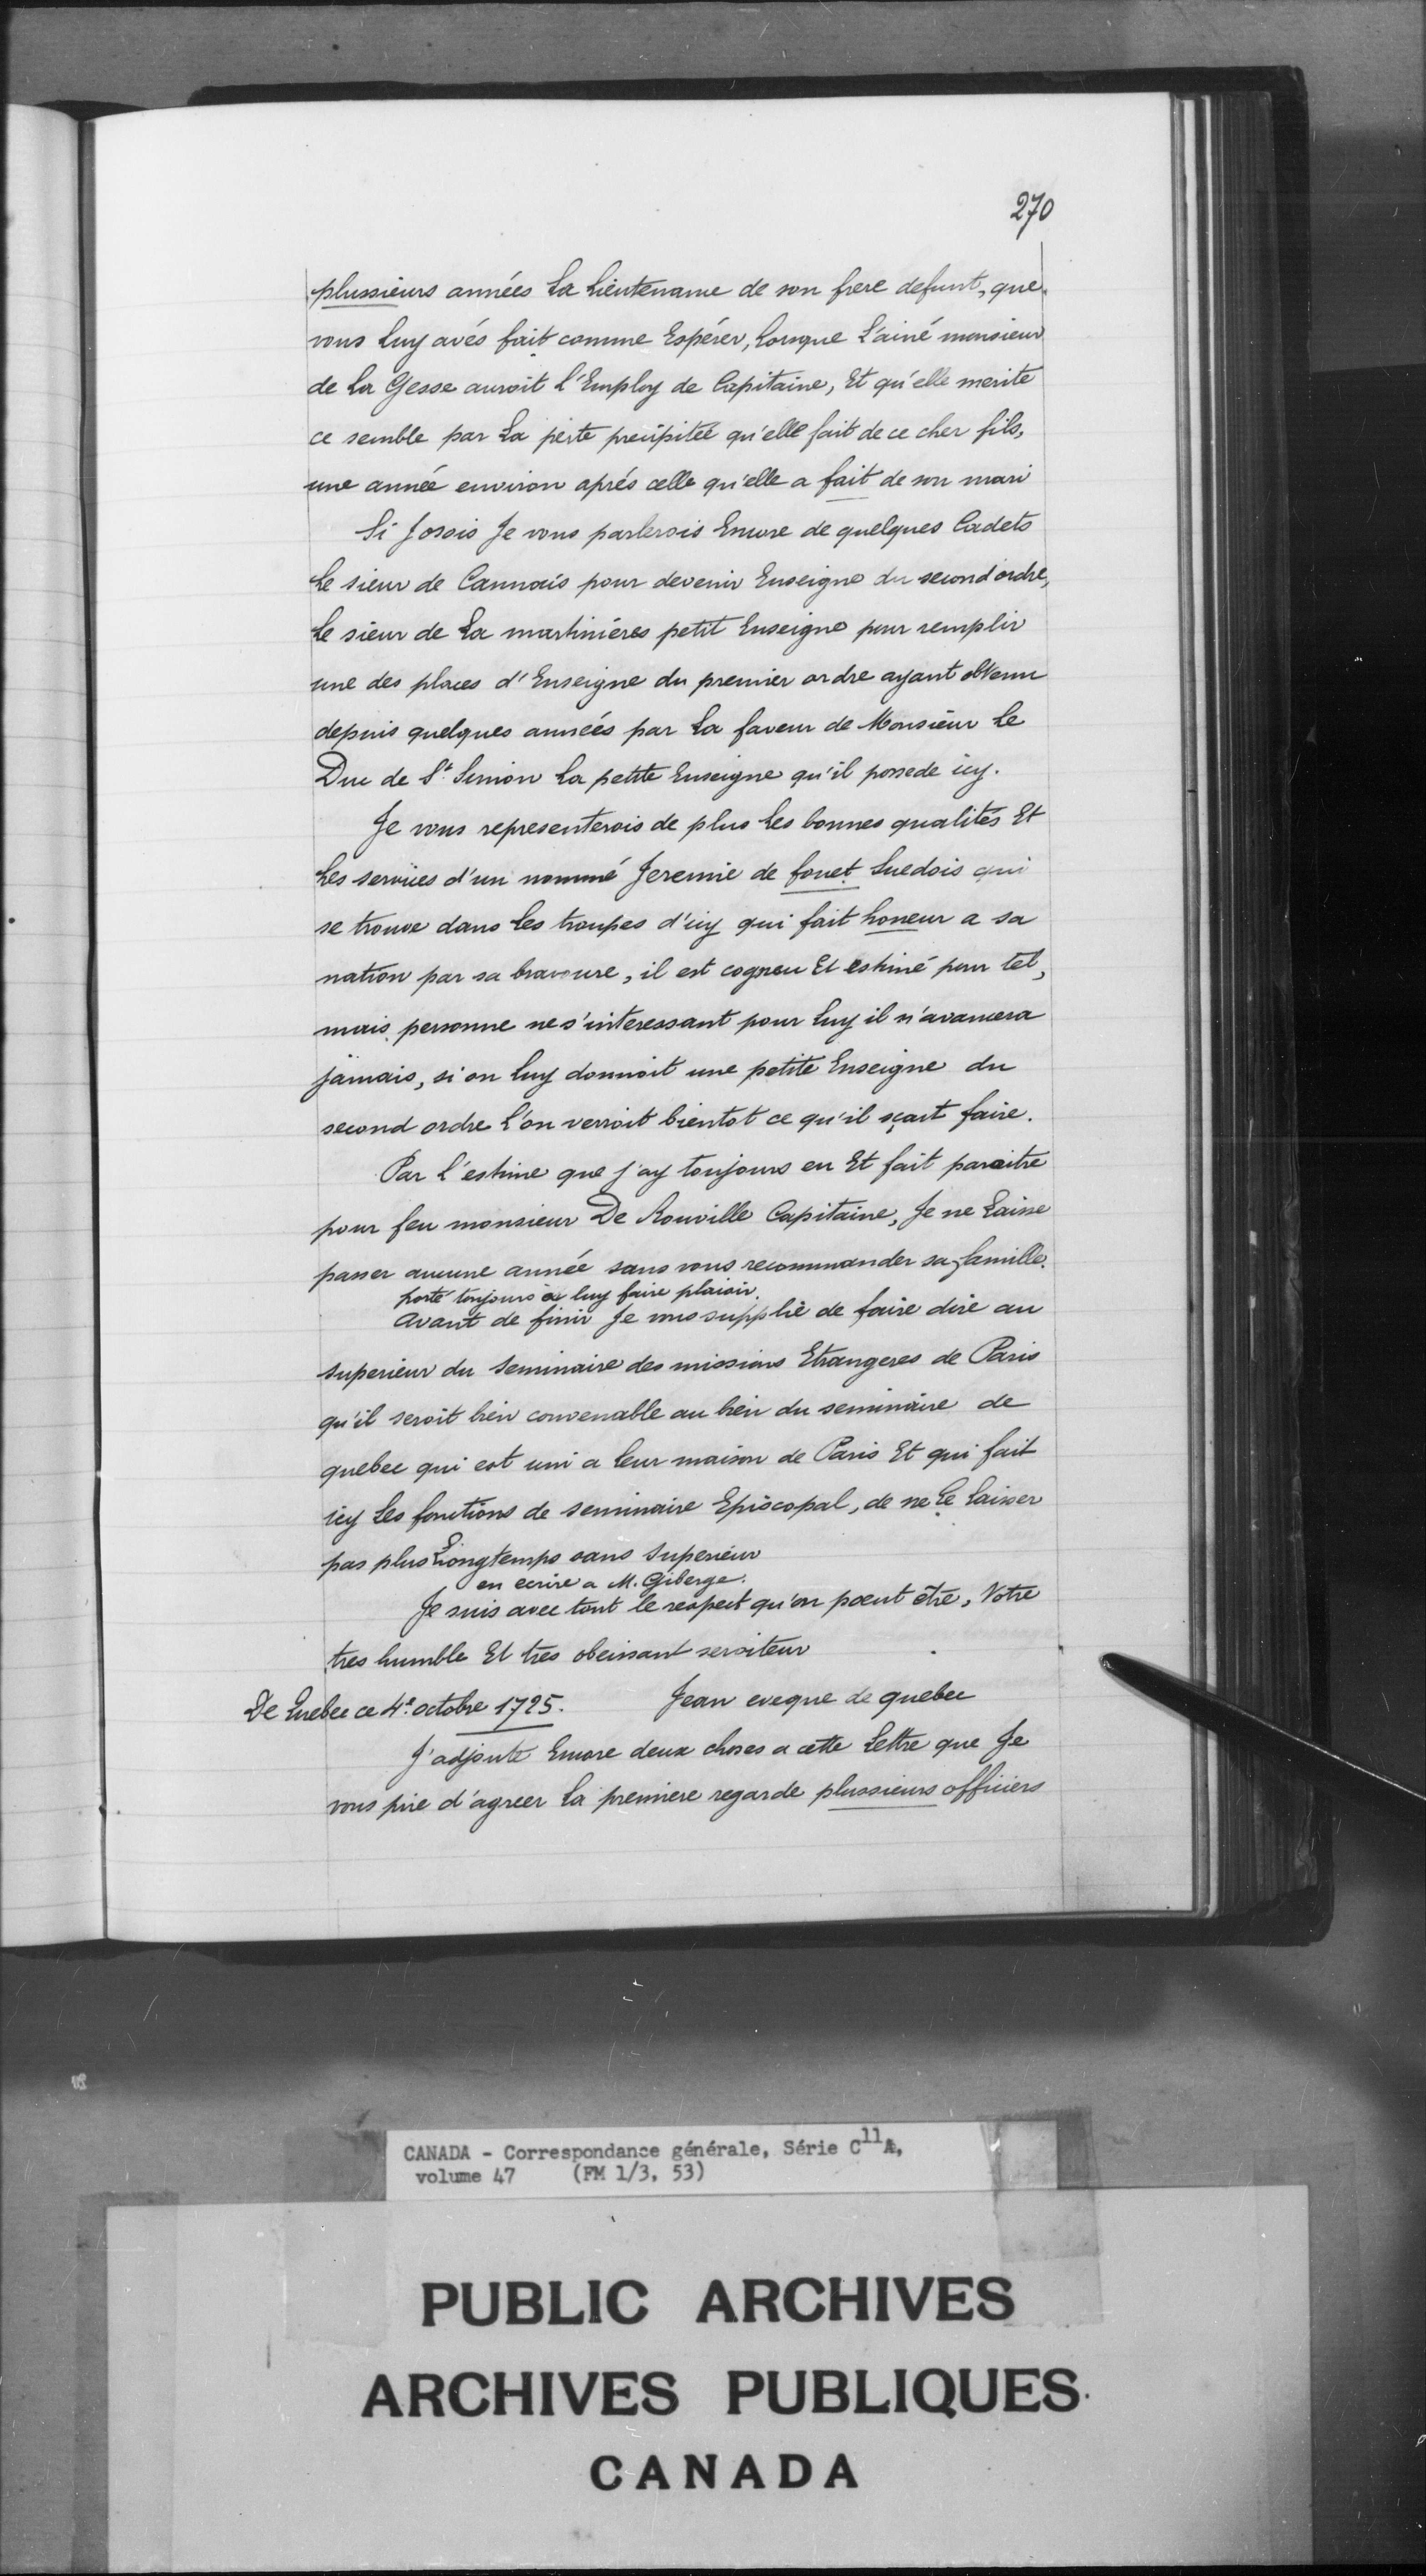 270
plussieurs années La Lieutenance de son frere defunt, que
vous Luy avés fait comme Espérer, Lorsque L'ainé monsieur
de La Gesse auroit l'Employ de Capitaine, Et qu'elle merite
ce semble par La perte precipitée qu'elle fait de ce cher fils,
une année environ aprés celle qu'elle a fait de son mari
Si Josois Je vous parlerois Encore de quelques Cadets
Le sieur de Cannois pour devenir Enseigne du second ordre,
Le sieur de La martiniéres petit Enseigne pour remplir
une des places d'Enseigne du premier ordre ayant obtenu
depuis quelques années par La faveur de Monsieur Le
Duc de St Simon La petite Enseigne qu'il possede icy.
Je vous representerois de plus Les bonnes qualités Et
Les services d'un nommé Jeremie de fouet Suedois qui
se trouve dans Les troupes d'icy qui fait honeur a sa
nation par sa bravoure, il est cogneu Et estimé pour tel,
mais personne ne s'interessant pour Luy il n'avancera
jamais, si on Luy donnoit une petite Enseigne du
second ordre L'on verroit bientot ce qu'il sçait faire.
Par l'estime que j'ay toujours eu Et fait paroitre
pour feu monsieur De Rouville Capitaine, Je ne Laisse
passer aucune année sans vous recommander sa famille.
porté toujours à luy faire plaisir.
Avant de finir Je vous supplie de faire dire au
superieur du Seminaire des missions Etrangeres de Paris
qu'il seroit bien convenable au bien du seminaire de
quebec qui est uni a leur maison de Paris Et qui fait
icy Les fonctions de seminaire Episcopal, de ne Le Laisser
pas plus Longtemps sans Superieur
en ecrire a M. Giberge.
Je suis avec tout le respect qu'on poeut être, Votre
tres humble Et tres obeissant serviteur
De Quebec ce 4e octobre 1725. Jean eveque de quebec
J'adjoute Encore deux choses a cette Lettre que Je
vous prie d'agreer La premiere regarde plussieurs officiers
CANADA - Correspondance générale, Série C11A,
volume 47 (FM 1/3, 53)
PUBLIC ARCHIVES
ARCHIVES PUBLIQUES
CANADA